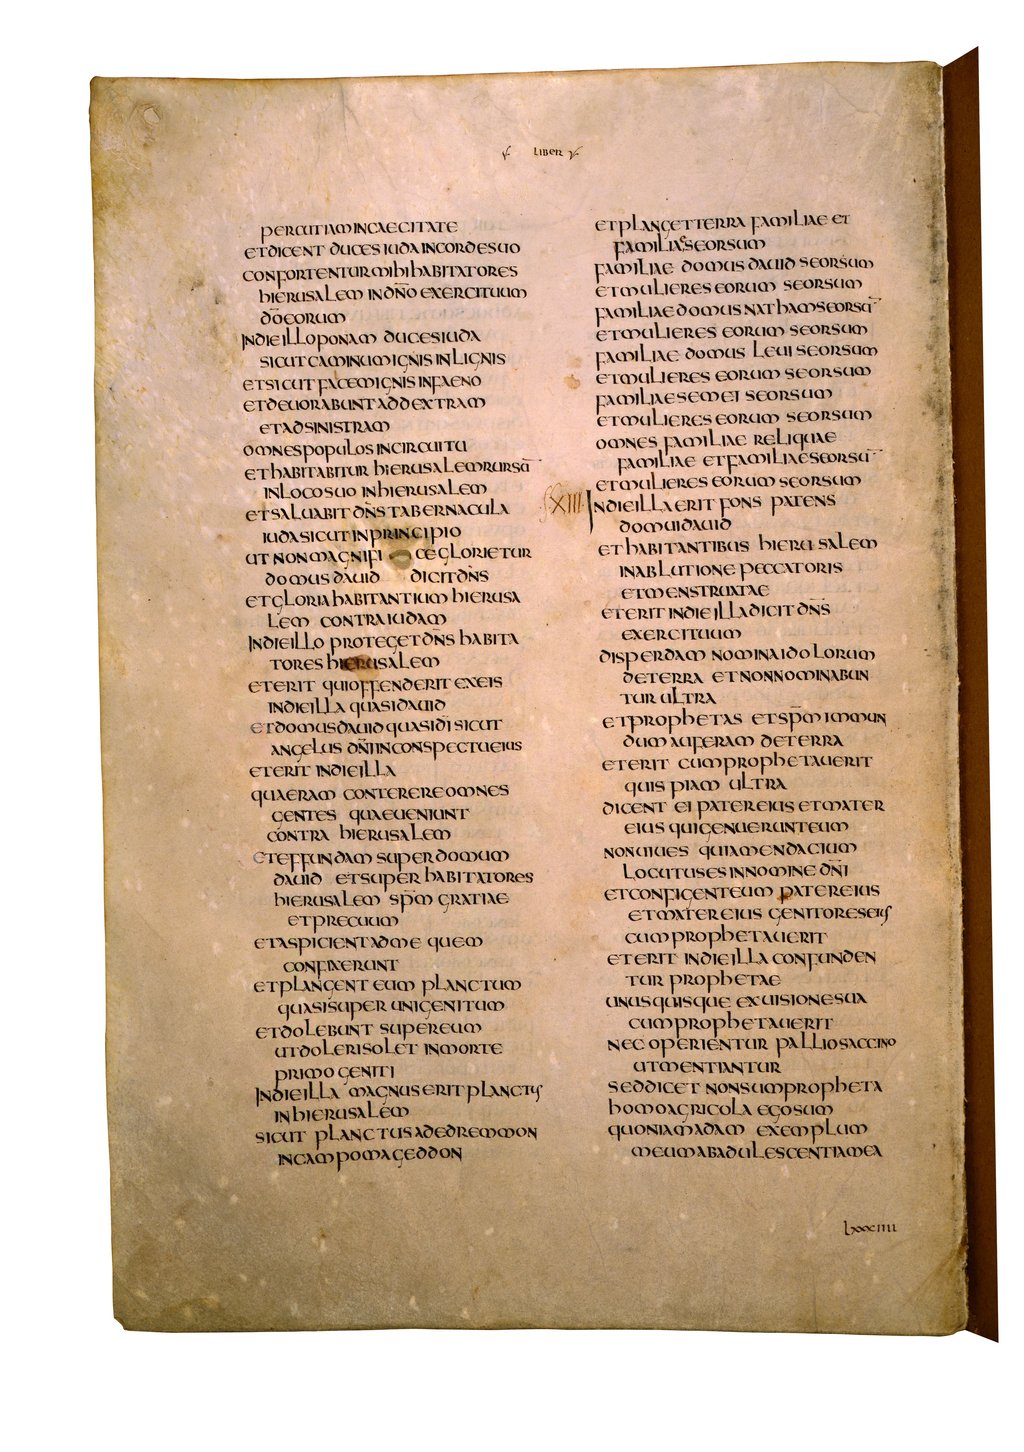 LIBER
PERCUTIAM IN CAECITATE
ET DICENT DUCES IUDA IN CORDE SUO
CONFORTENTUR MIHI HABITATORES
HIERUSALEM IN DN̄O EXERCITUUM
DŌ EORUM
IN DIE ILLO PONAM DUCES IUDA
SICUT CAMINUM IGNIS IN LIGNIS
ET SICUT FACEM IGNIS IN FAENO
ET DEUORABUNT AD DEXTRAM
ET AD SINISTRAM
OMNES POPULOS IN CIRCUITU
ET HABITABITUR HIERUSALEM RURSŪ
IN LOCO SUO IN HIERUSALEM
ET SALUABIT DN̄S TABERNACULA
IUDA SICUT IN PRINCIPIO
UT NON MAGNIFICE GLORIETUR
DOMUS DAUID DICIT DN̄S
ET GLORIA HABITANTIUM HIERUSA
LEM CONTRA IUDAM
IN DIE ILLO PROTEGET DN̄S HABITA
TORES HIERUSALEM
ET ERIT QUI OFFENDERIT EX EIS
IN DIE ILLA QUASI DAUID
ET DOMUS DAUID QUASI DĪ SICUT
ANGELUS DN̄I IN CONSPECTU EIUS
ET ERIT IN DIE ILLA
QUAERAM CONTERERE OMNES
GENTES QUAE UENIUNT
CONTRA HIERUSALEM
ET EFFUNDAM SUPER DOMUM
DAUID ET SUPER HABITATORES
HIERUSALEM SPM̄ GRATIAE
ET PRECUUM
ET ASPICIENT AD ME QUEM
CONFIXERUNT
ET PLANGENT EUM PLANCTUM
QUASI SUPER UNIGENITUM
ET DOLEBUNT SUPER EUM
UT DOLERI SOLET IN MORTE
PRIMOGENITI
IN DIE ILLA MAGNUS ERIT PLANCTUS
IN HIERUSALEM
SICUT PLANCTUS ADEDREMMON
IN CAMPO MAGEDDON
ET PLANGET TERRA FAMILIAE ET
FAMILIAE SEORSUM
FAMILIAE DOMUS DAUID SEORSUM
ET MULIERES EORUM SEORSUM
FAMILIAE DOMUS NATHAM SEORSŪ
ET MULIERES EORUM SEORSUM
FAMILIAE DOMUS LEUI SEORSUM
ET MULIERES EORUM SEORSUM
FAMILIAE SEMEI SEORSUM
ET MULIERES EORUM SEORSUM
OMNES FAMILIAE RELIQUAE
FAMILIAE ET FAMILIAE SEORSŪ
ET MULIERES EORUM SEORSUM
XIII. IN DIE ILLA ERIT FONS PATENS
DOMUI DAUID
ET HABITANTIBUS HIERUSALEM
IN ABLUTIONE PECCATORIS
ET MENSTRUATAE
ET ERIT IN DIE ILLA DICIT DN̄S
EXERCITUUM
DISPERDAM NOMINA IDOLORUM
DE TERRA ET NON NOMINABUN
TUR ULTRA
ET PROPHETAS ET SPM̄ IMMUN
DUM AUFERAM DE TERRA
ET ERIT CUM PROPHETAUERIT
QUISPIAM ULTRA
DICENT EI PATER EIUS ET MATER
EIUS QUI GENUERUNT EUM
NON UIUES QUIA MENDACIUM
LOCUTUS ES IN NOMINE DN̄I
ET CONFIGENT EUM PATER EIUS
ET MATER EIUS GENITORES EIUS
CUM PROPHETAUERIT
ET ERIT IN DIE ILLA CONFUNDEN
TUR PROPHETAE
UNUSQUISQUE EX UISIONE SUA
CUM PROPHETAUERIT
NEC OPERIENTUR PALLIO SACCINO
UT MENTIANTUR
SED DICET NON SUM PROPHETA
HOMO AGRICOLA EGO SUM
QUONIAM ADAM EXEMPLUM
MEUM AB ADULESCENTIA MEA
LXXCIIII